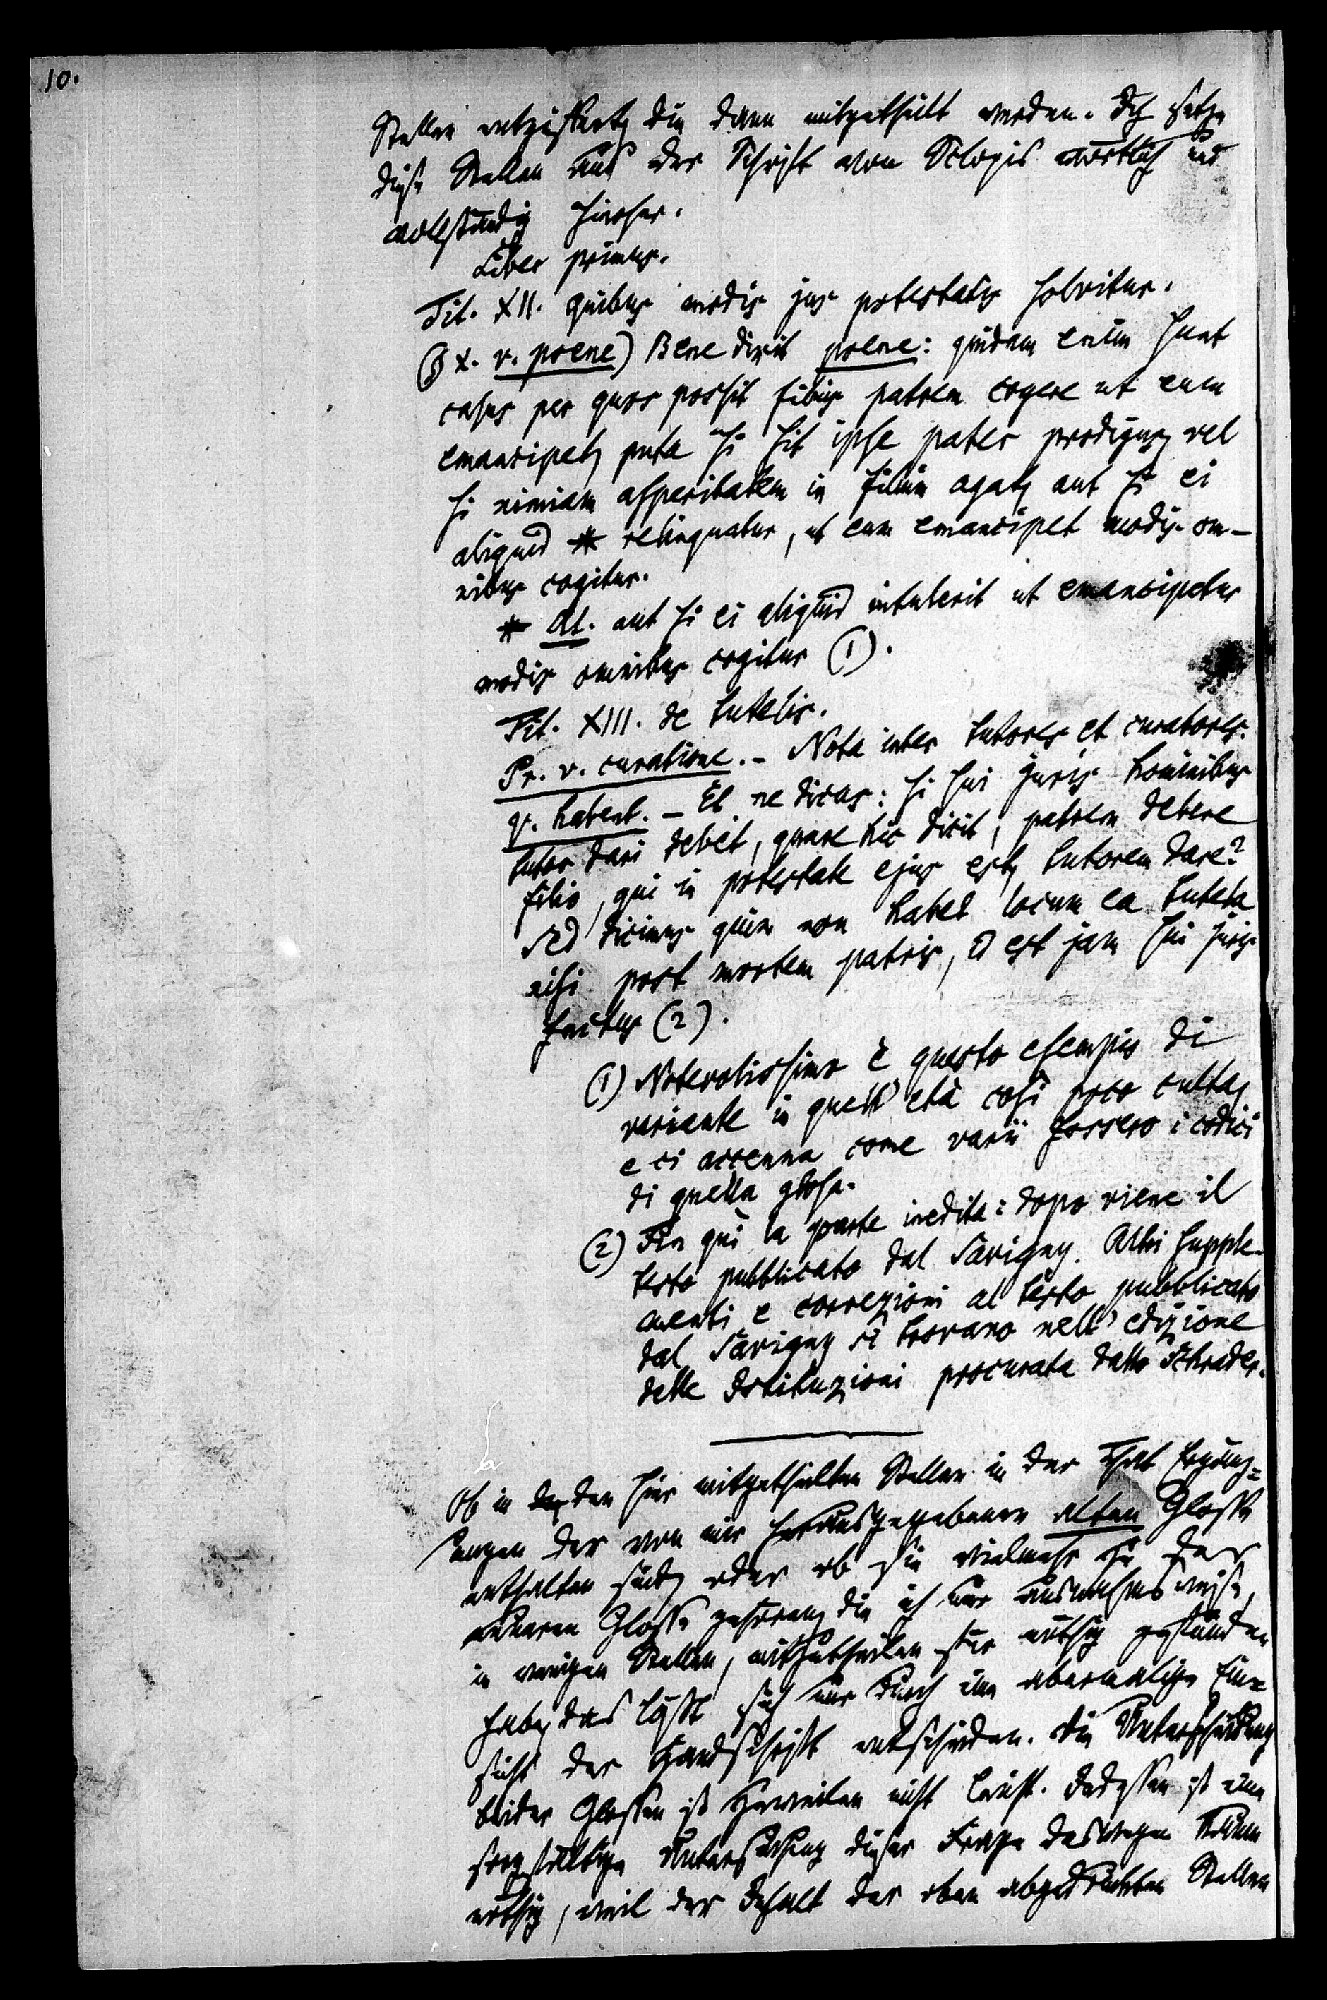 10.
Stellen entziffert, die dann mitgetheilt werden. Ich setze
diese Stellen aus der Schrift von Sclopis wörtlich und
vollständig hierher.
Liber primus.
Tit. XII. quibus modis jus potestatis solvitur.
(§ X. v. poene) Bene dixit poene: quidam enim sunt
casus per quos possit filius patrem cogere ut eum
emancipet, puta si sit ipse pater prodigus, vel
si nimiam asperitatem in filium agat, aut si ei
aliquid * relinquatur, ut eum emancipet modis om-
nibus cogitur.
* Al. aut si ei aliquid intulerit ut emancipetur
modis omnibus cogitur (1).
Tit. XIII. de tutelis.
Pr. v. curatione. - Nota inter tutores et curatores.
v. habent. - Et ne dicas: si sui juris hominibus
tutor dari debet, quare hic dicit, patrem debere
filio, qui in potestate ejus est, tutorem dare?
sed dicimus quia non habet locum ea tutela
nisi post mortem patris, id est jam sui juris
factus (2).
(1) Notevolissimo è questo esempio di
variante in quell' età così poco culta,
e ci accenna come varii fossero i codici
di quella glosa.
(2) Fin qui la parte inedita: dopo viene il
testo pubblicato dal Savigny. Altri supple-
menti e correzioni al testo pubblicato
dal Savigny si trovano nell' edizione
delle Istituzioni procurata dallo Schrader.
Ob in den hier mitgetheilten Stellen in der That Ergänz-
ungen der von mir herausgegebenen alten Glosse
enthalten sind, oder ob sie vielmehr zu der
neueren Glosse gehören, die ich nur ausnahmsweise,
in wenigen Stellen, mitzutheilen für nöthig gefunden
habe, das läßt sich nur durch eine abermalige Ein-
sicht der Handschrift entscheiden. Die Unterscheidung
beider Glossen ist zuweilen nicht leicht. Indessen ist eine
sorgfältige Untersuchung dieser Frage deswegen kaum
nöthig, weil der Inhalt der oben abgedruckten Stellen